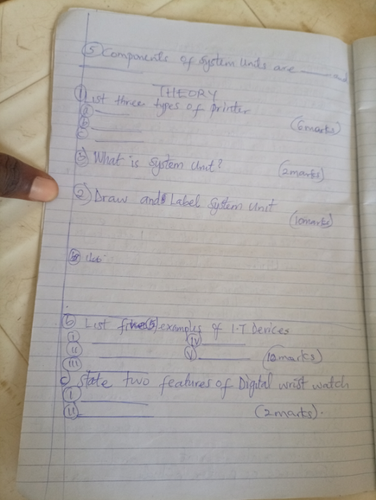 ⑤ Components of system units are ____ and
____
THEORY
① List three types of printer
ⓐ ____
ⓑ ____ (6marks)
ⓒ ____
③ What is system unit? (2marks)
② Draw and Label System Unit
(10marks)
b List five(5) examples of I.T Devices
ⓘ ____ ⓘⓥ ____
ⓘⓘ ____ ⓥ ____ (10marks)
ⓘⓘⓘ ____
c State two features of Digital wrist watch
ⓘ ____
ⓘⓘ ____ (2marks).